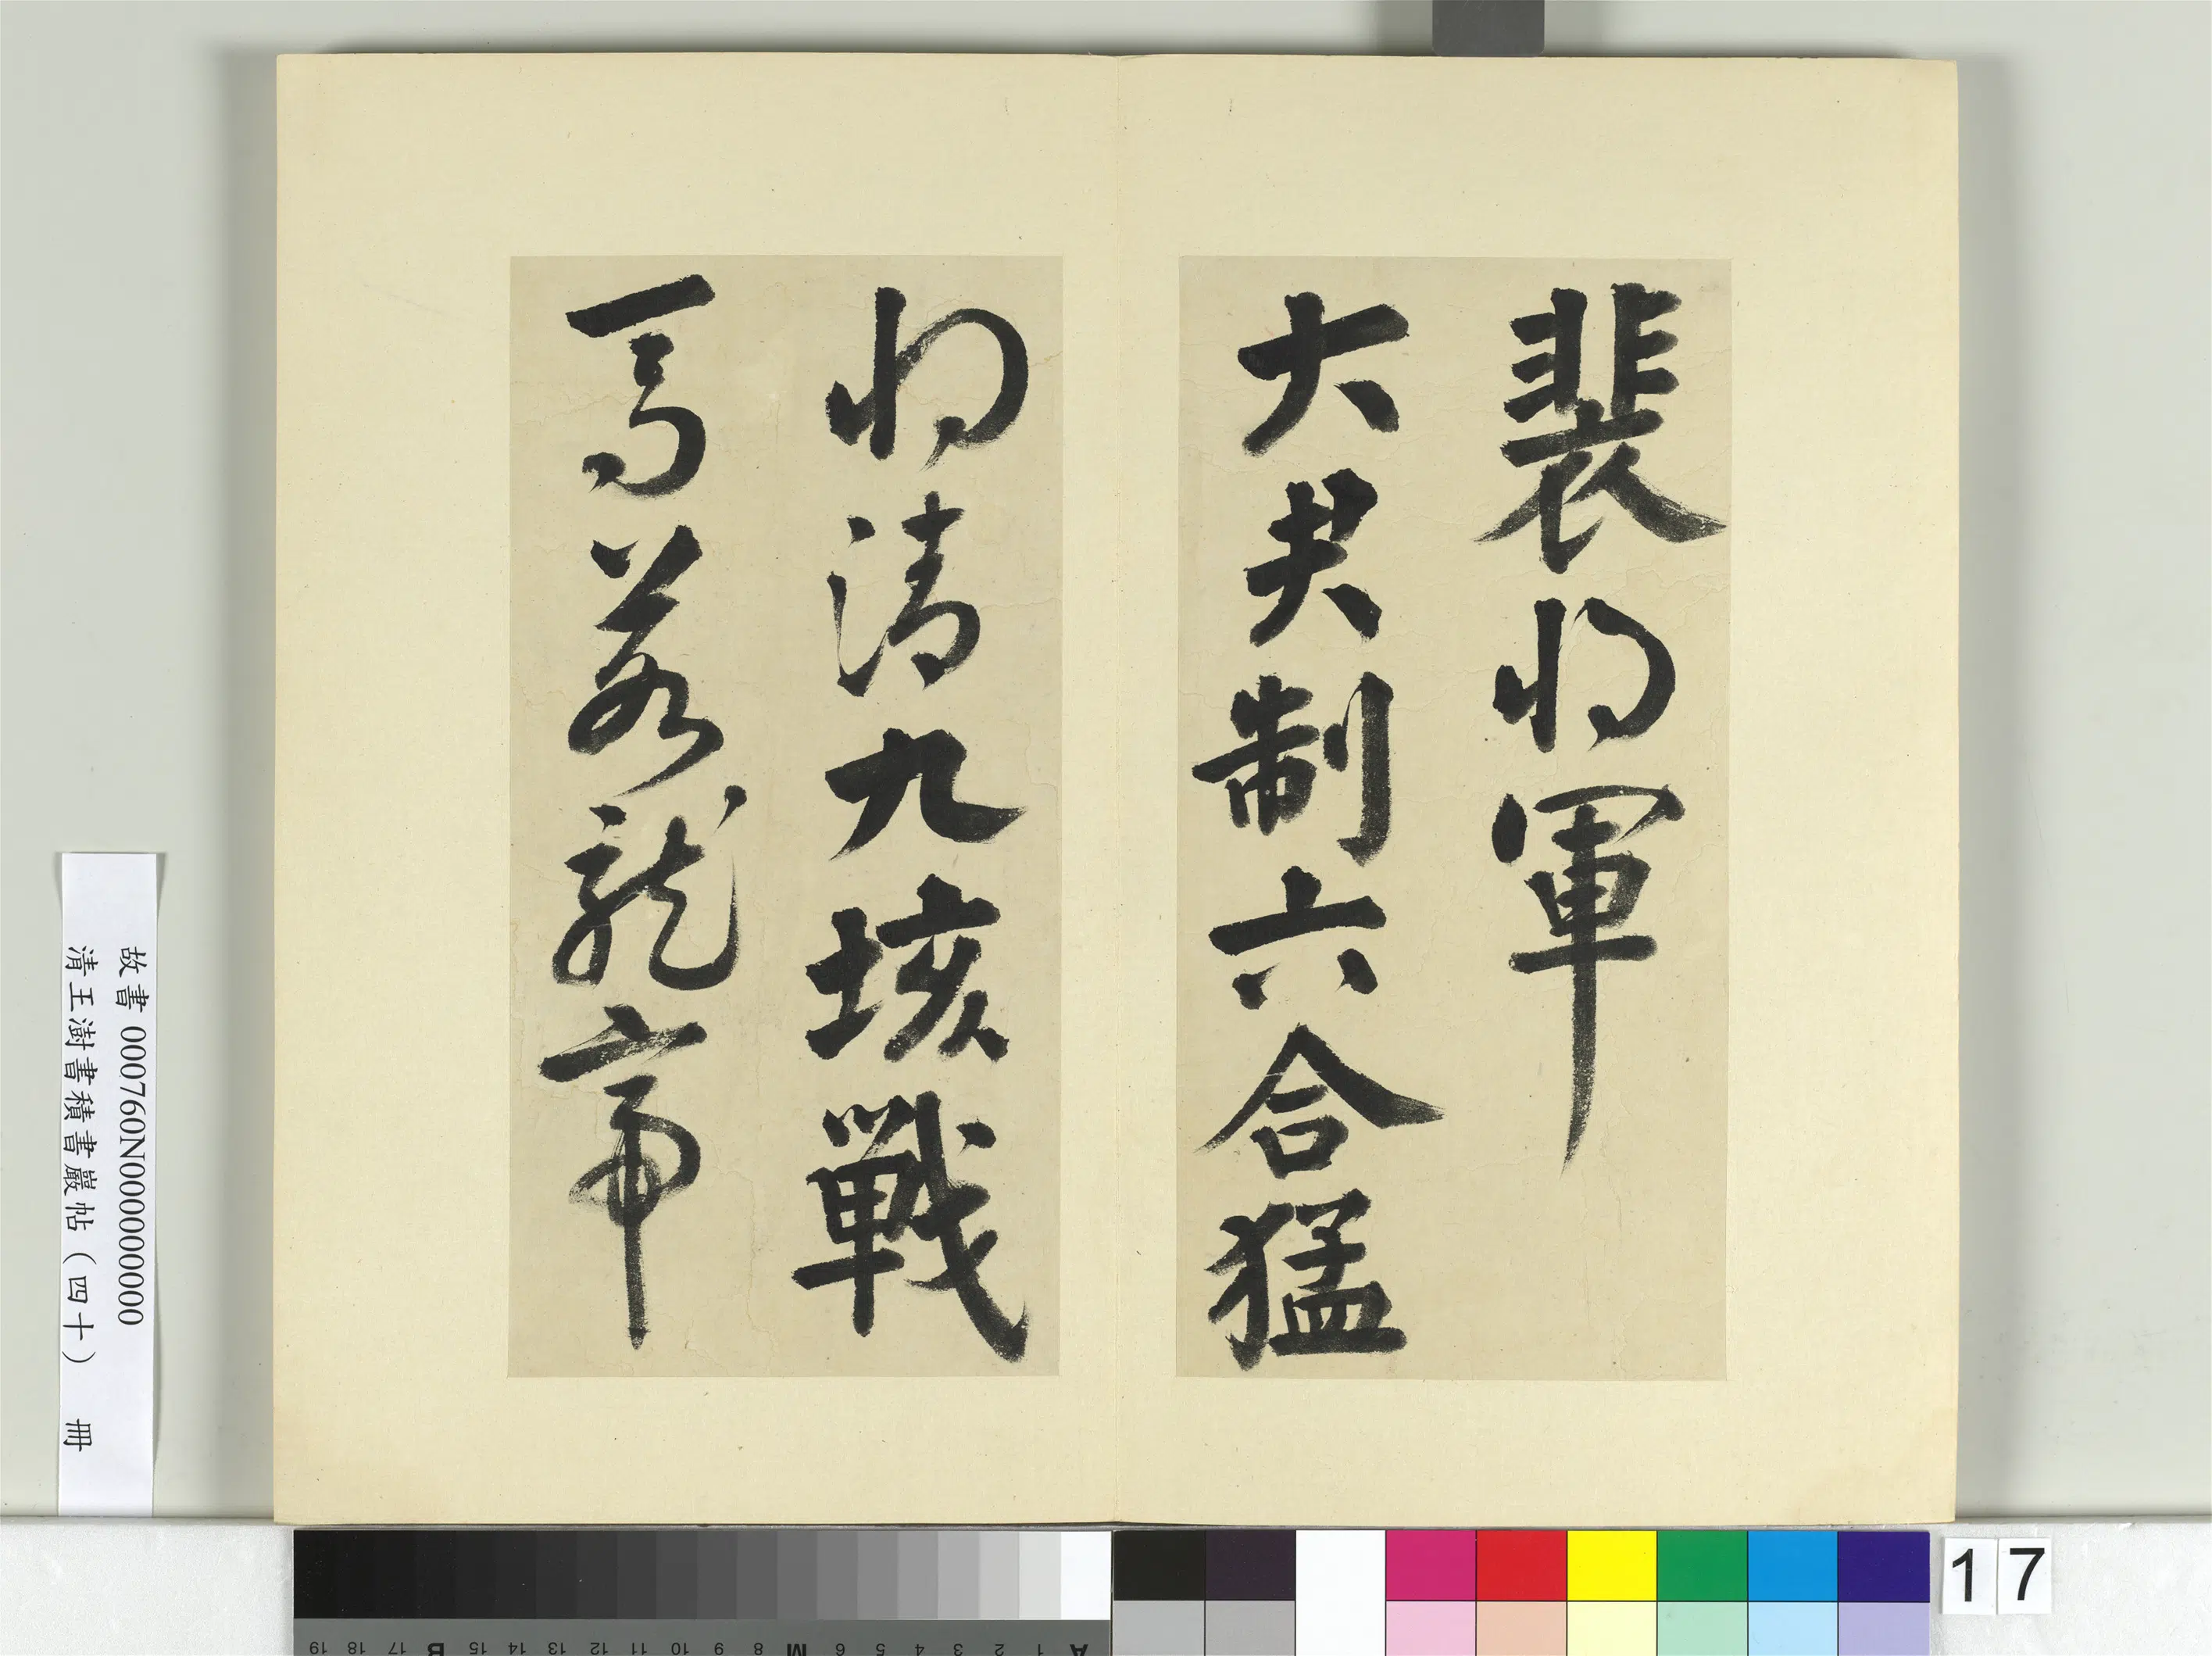 裴将軍
大君制六合猛
将清九垓戰
馬若龍虎
故書 000760N000000000
清王澍書積書巖帖（四十） 冊
17
A 1 2 3 4 5 6 M 8 9 10 11 12 13 14 15 B 17 18 19